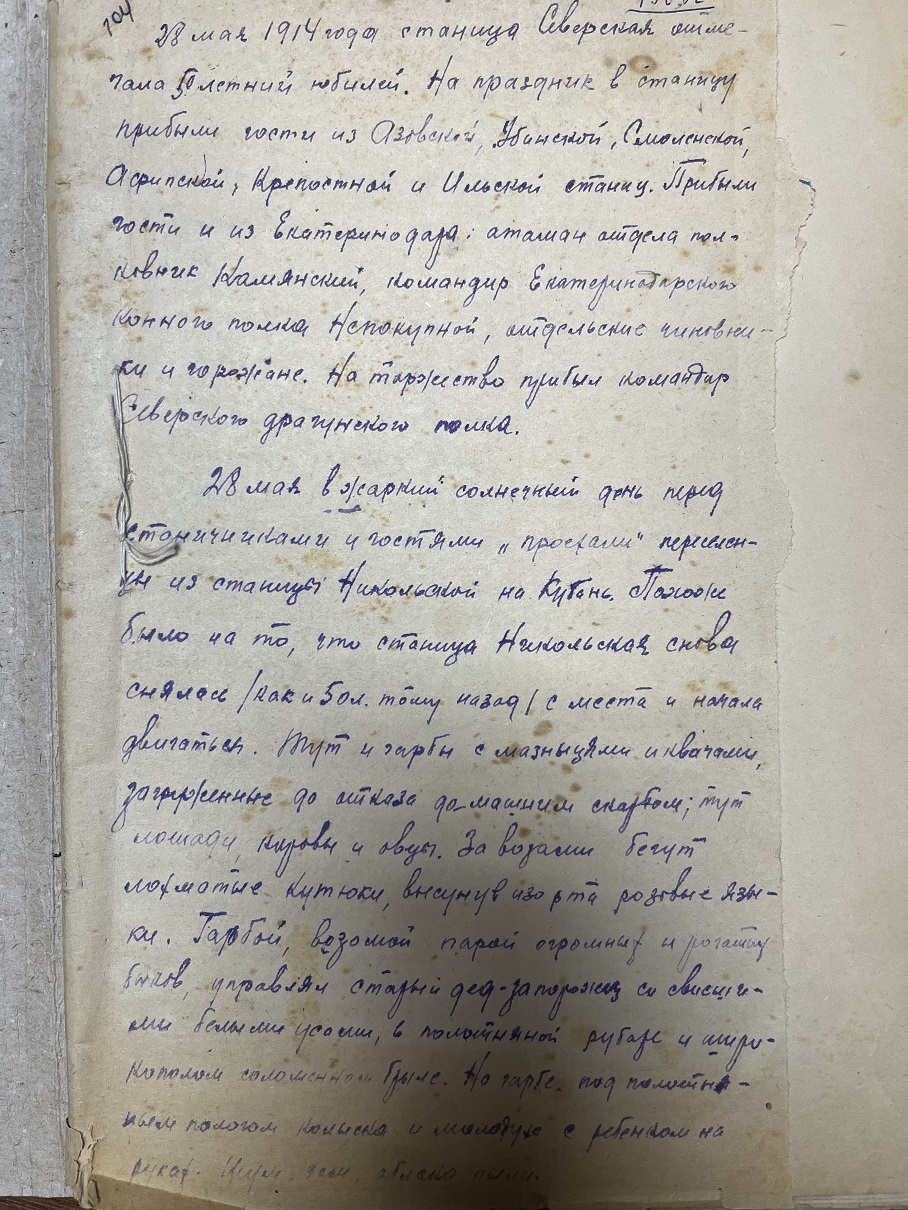 104
28 мая 1914 года станица Северская отме-
чала 50летний юбилей. На праздник в станицу
прибыли гости из Азовской, Убинской, Смоленской,
Афипской, Крепостной и Ильской станиц. Прибыли
гости и из Екатеринодара: атаман отдела пол-
ковник Камянский, командир Екатеринодарского
конного полка Непокупной, отдельские чиновни-
ки и горожане. На торжество прибыл командир
Северского драгунского полка.
28 мая в жаркий солнечный день перед
станичниками и гостями „проехали" переселен-
цы из станицы Никольской на Кубань. Похоже
было на то, что станица Никольская снова
снялась /как и 50 л. тому назад/ с места и начала
двигаться. Тут и гарбы с мазныцями и квачами,
загруженные до отказа домашним скарбом; тут
лошади, коровы и овцы. За возами бегут
лохматые кутюки, высунув изо рта розовые язы-
ки. Гарбой, возомой парой огромных и рогатых
быков, управлял старый дед-запорожец со свисши-
ми белыми усами, в полотняной рубахе и широ-
кополом соломенном брыле. На гарбе под полотня-
ным пологом колыска и молодуха с ребенком на
руках. Шум, гам, облака пыли.